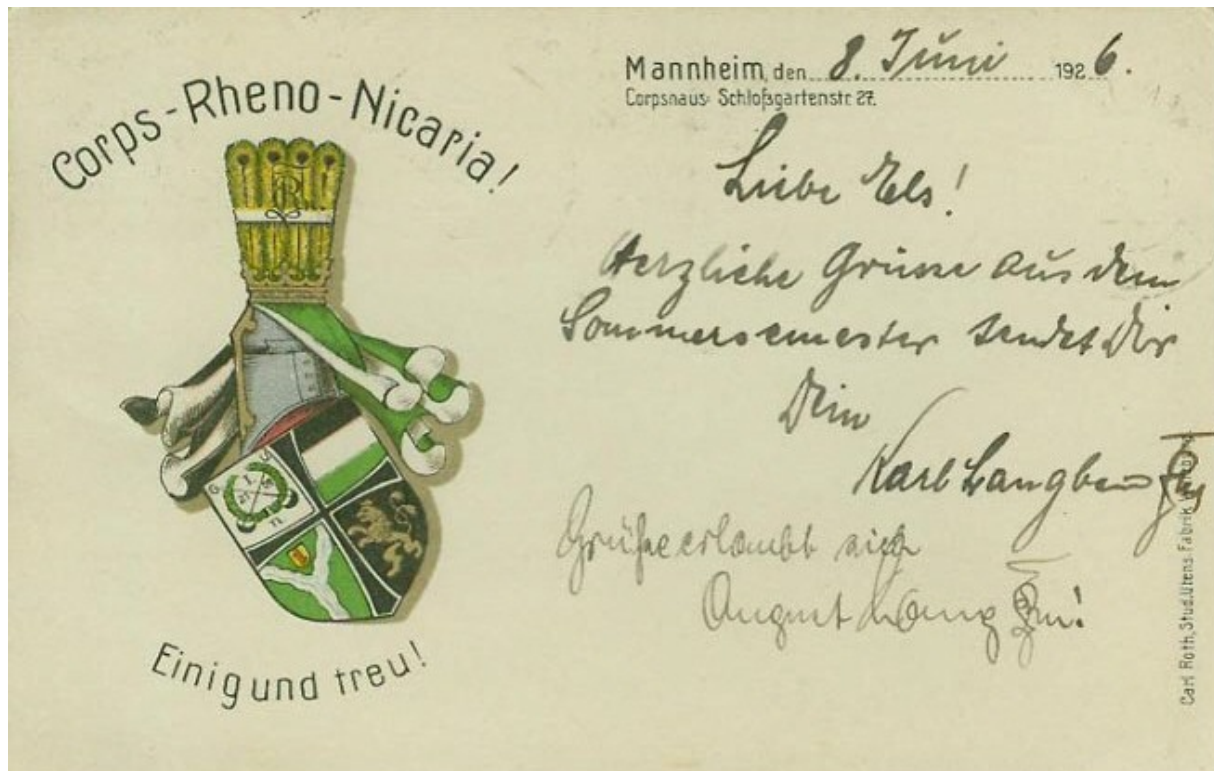 Corps-Rheno-Nicaria!
Einig und treu!
Mannheim, den 8. Juni 1926.
Corpshaus: Schloßgartenstr. 27.
Liebe Els!
Herzliche Grüsse aus dem
Sommersemester sendet Dir
Dein
Karl Langbein
Grüße erlaubt sich
August Lang
Carl Roth, Stud. Utens. Fabrik